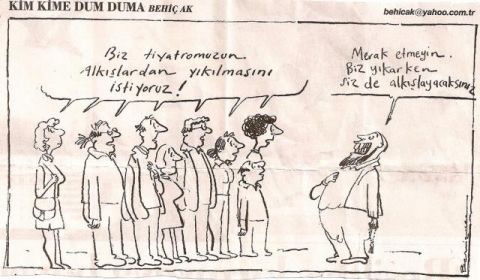 KİM KİME DUM DUMA BEHİÇ AK
behicak@yahoo.com.tr
Biz tiyatromuzun
Alkışlardan yıkılmasını
istiyoruz!
Merak etmeyin.
Biz yıkarken
siz de alkışlayacaksınız